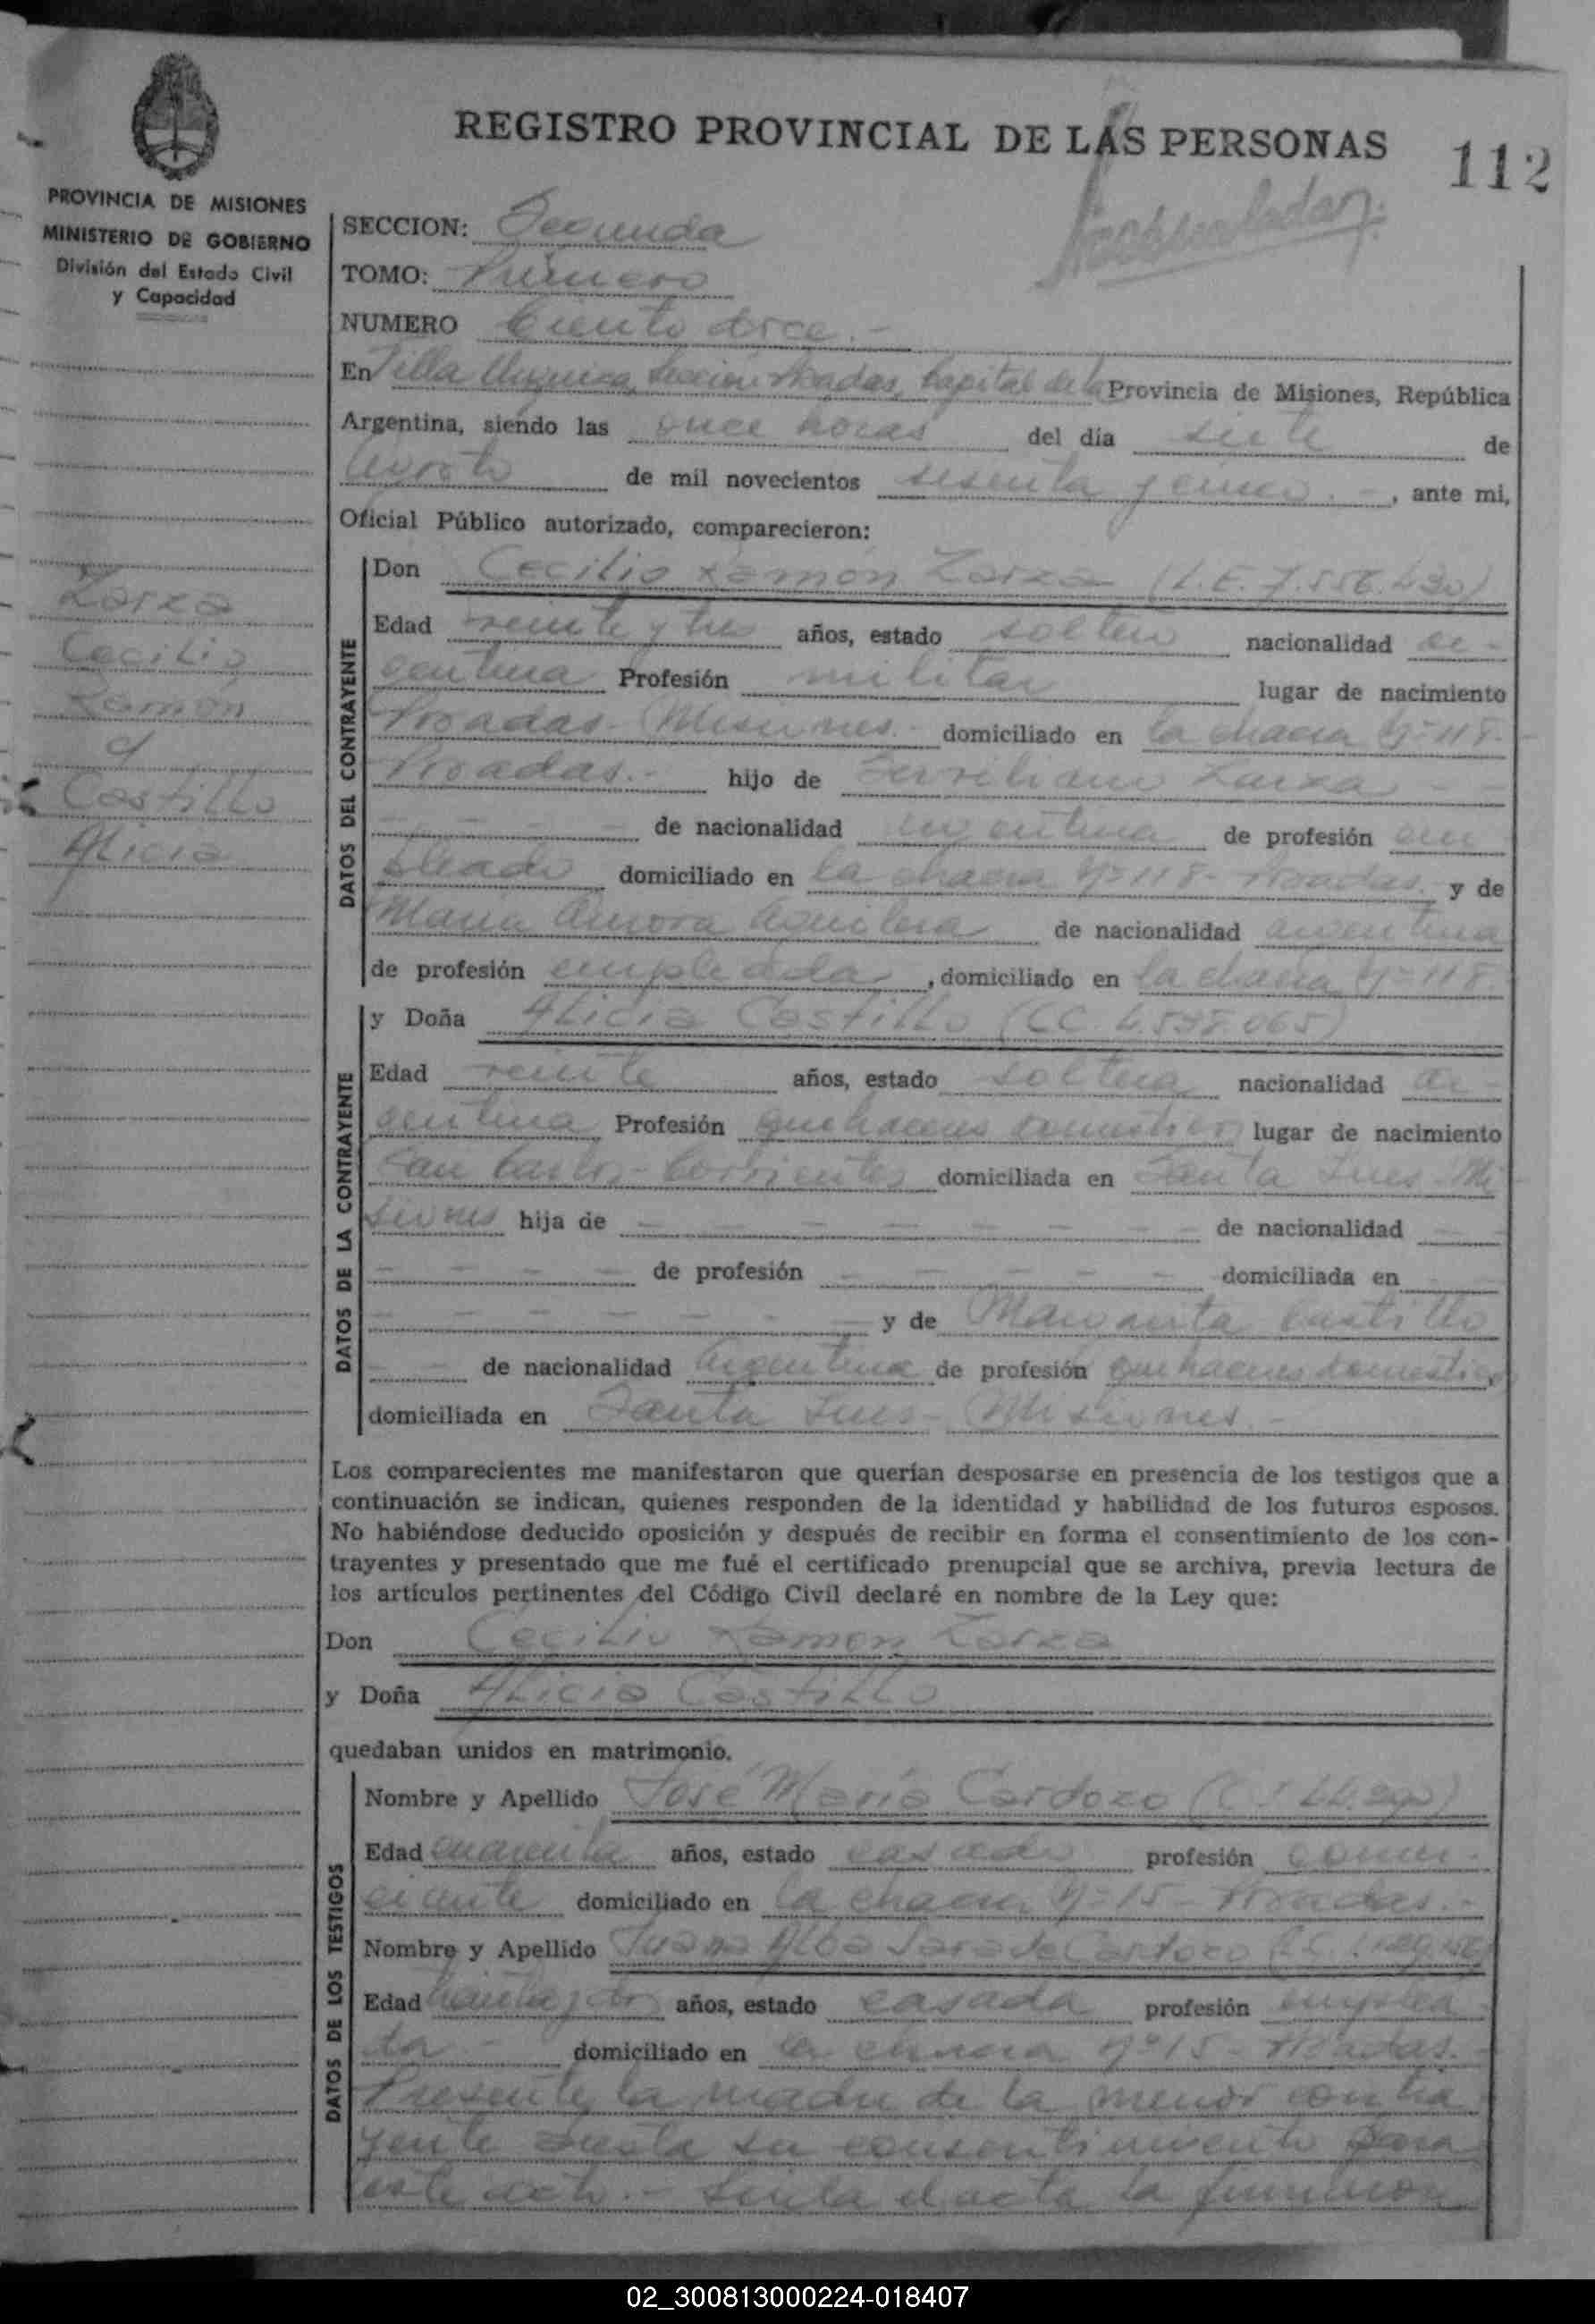 REGISTRO PROVINCIAL DE LAS PERSONAS
112
PROVINCIA DE MISIONES
MINISTERIO DE GOBIERNO
División del Estado Civil
y Capacidad
SECCION: Segunda
TOMO: Primero
NUMERO Ciento doce.-
En Villa Urquiza, Sección Posadas, Capital de la Provincia de Misiones, República
Argentina, siendo las once horas del día siete de
Agosto de mil novecientos sesenta y cinco.-, ante mi,
Oficial Público autorizado, comparecieron:
Zarza
Cecilio
Ramón
c/
Castillo
Alicia
DATOS DEL CONTRAYENTE
Don Cecilio Ramón Zarza (L.E. 7.556.430)
Edad veinte y tres años, estado soltero nacionalidad ar-
gentina Profesión militar lugar de nacimiento
Posadas - Misiones.- domiciliado en la chacra Nº 118-
Posadas.- hijo de Zarza - -
- - - - de nacionalidad argentina de profesión em
pleado domiciliado en la chacra Nº 118 - Posadas. y de
María Aurora Aguilera de nacionalidad argentina
de profesión empleada, domiciliado en la chacra Nº 118
DATOS DE LA CONTRAYENTE
y Doña Alicia Castillo (C.C. 4.598.065)
Edad veinte años, estado soltera nacionalidad ar-
gentina Profesión quehaceres domésticos lugar de nacimiento
San Carlos - Corrientes domiciliada en Santa Ines - Mi
siones hija de - - - - - - - - de nacionalidad - -
- - - - de profesión - - - - - domiciliada en
- - - - - - - y de Margarita Castillo
- - de nacionalidad Argentina de profesión quehaceres domésticos,
domiciliada en Santa Ines - Misiones.-
Los comparecientes me manifestaron que querían desposarse en presencia de los testigos que a
continuación se indican, quienes responden de la identidad y habilidad de los futuros esposos.
No habiéndose deducido oposición y después de recibir en forma el consentimiento de los con-
trayentes y presentado que me fué el certificado prenupcial que se archiva, previa lectura de
los artículos pertinentes del Código Civil declaré en nombre de la Ley que:
Don Cecilio Ramón Zarza
y Doña Alicia Castillo
quedaban unidos en matrimonio.
DATOS DE LOS TESTIGOS
Nombre y Apellido José María Cardozo
Edad cuarenta años, estado casado profesión comer-
ciante domiciliado en la chacra Nº 15 - Posadas.-
Nombre y Apellido Juana Alba de Cardozo
Edad treinta y dos años, estado casada profesión emplea
da - domiciliado en la chacra Nº 15 - Posadas.
Presente la madre de la menor contra
yente presta su consentimiento para
este acto.- Leída el acta la firmaron
02_300813000224-018407